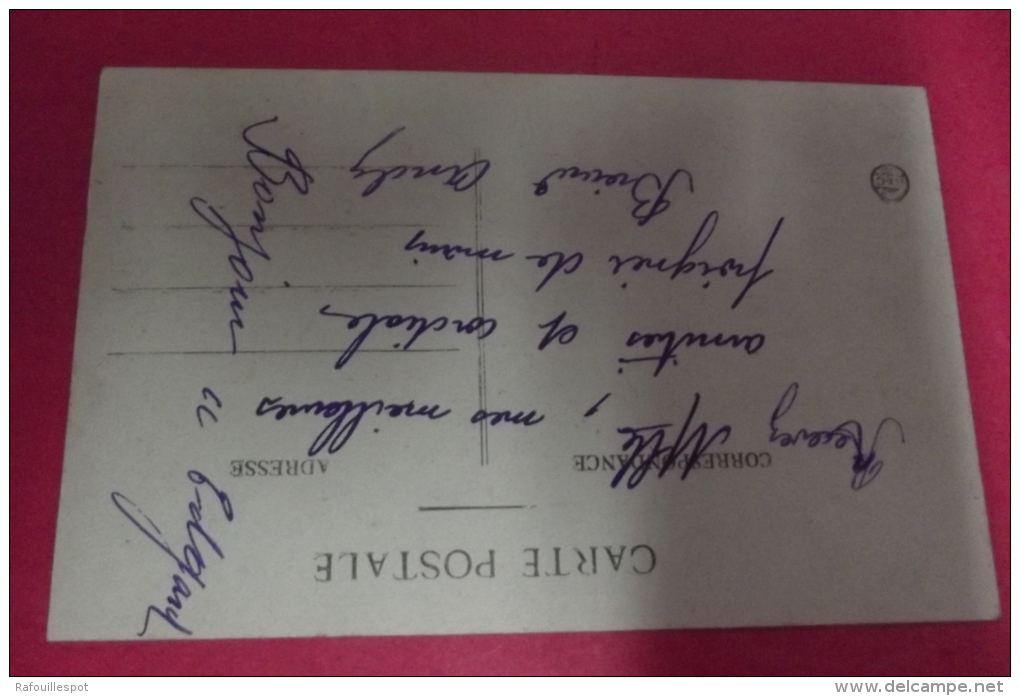 CARTE POSTALE
CORRESPONDANCE
ADRESSE
Recevez Mlle, mes meilleures
amitiés et cordiales
poignei de mains
Bonjour a
Rafouillespot
www.delcampe.net